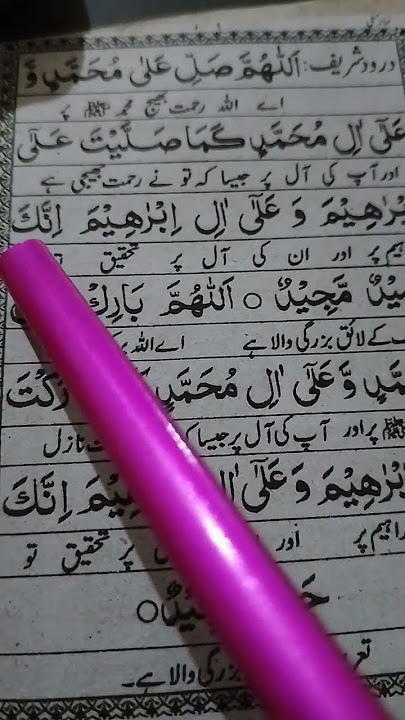 درود شریف: اَللّٰهُمَّ صَلِّ عَلٰى مُحَمَّدٍ وَّ
اے اللہ رحمت بھیج محمد ﷺ پر
عَلٰٓى اٰلِ مُحَمَّدٍ كَمَا صَلَّيْتَ عَلٰٓى
اور آپ کی آل پر جیسا کہ تو نے رحمت بھیجی ہے
اِبْرٰهِيْمَ وَ عَلٰٓى اٰلِ اِبْرٰهِيْمَ اِنَّكَ
پر اور ان کی آل پر تحقیق
مَّجِيْدٌ ○ اَللّٰهُمَّ بَارِكْ
کے لائق بزرگی والا ہے اے اللہ
وَّعَلٰٓى اٰلِ مُحَمَّدٍ
ﷺ پر اور آپ کی آل پر جیسا نازل
اِبْرٰهِيْمَ وَ عَلٰٓى اِنَّكَ
پر اور پر تحقیق تو
○
بزرگی والا ہے۔